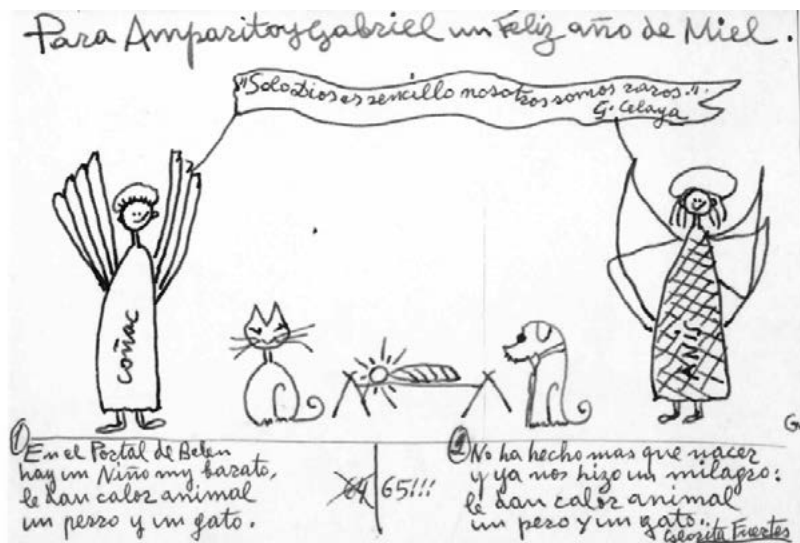 Para Amparito y Gabriel un Feliz año de Miel.
"Solo Dios es sencillo nosotros somos raros."
G. Celaya
COÑAC
ANIS
G
1
En el Portal de Belen
hay un Niño my barato,
le dan calor animal
un perro y un gato.
64 65!!!
2 No ha hecho mas que nacer
y ya nos hizo un milagro:
le dan calor animal
un pero y un gato..
Glorita Fuertes